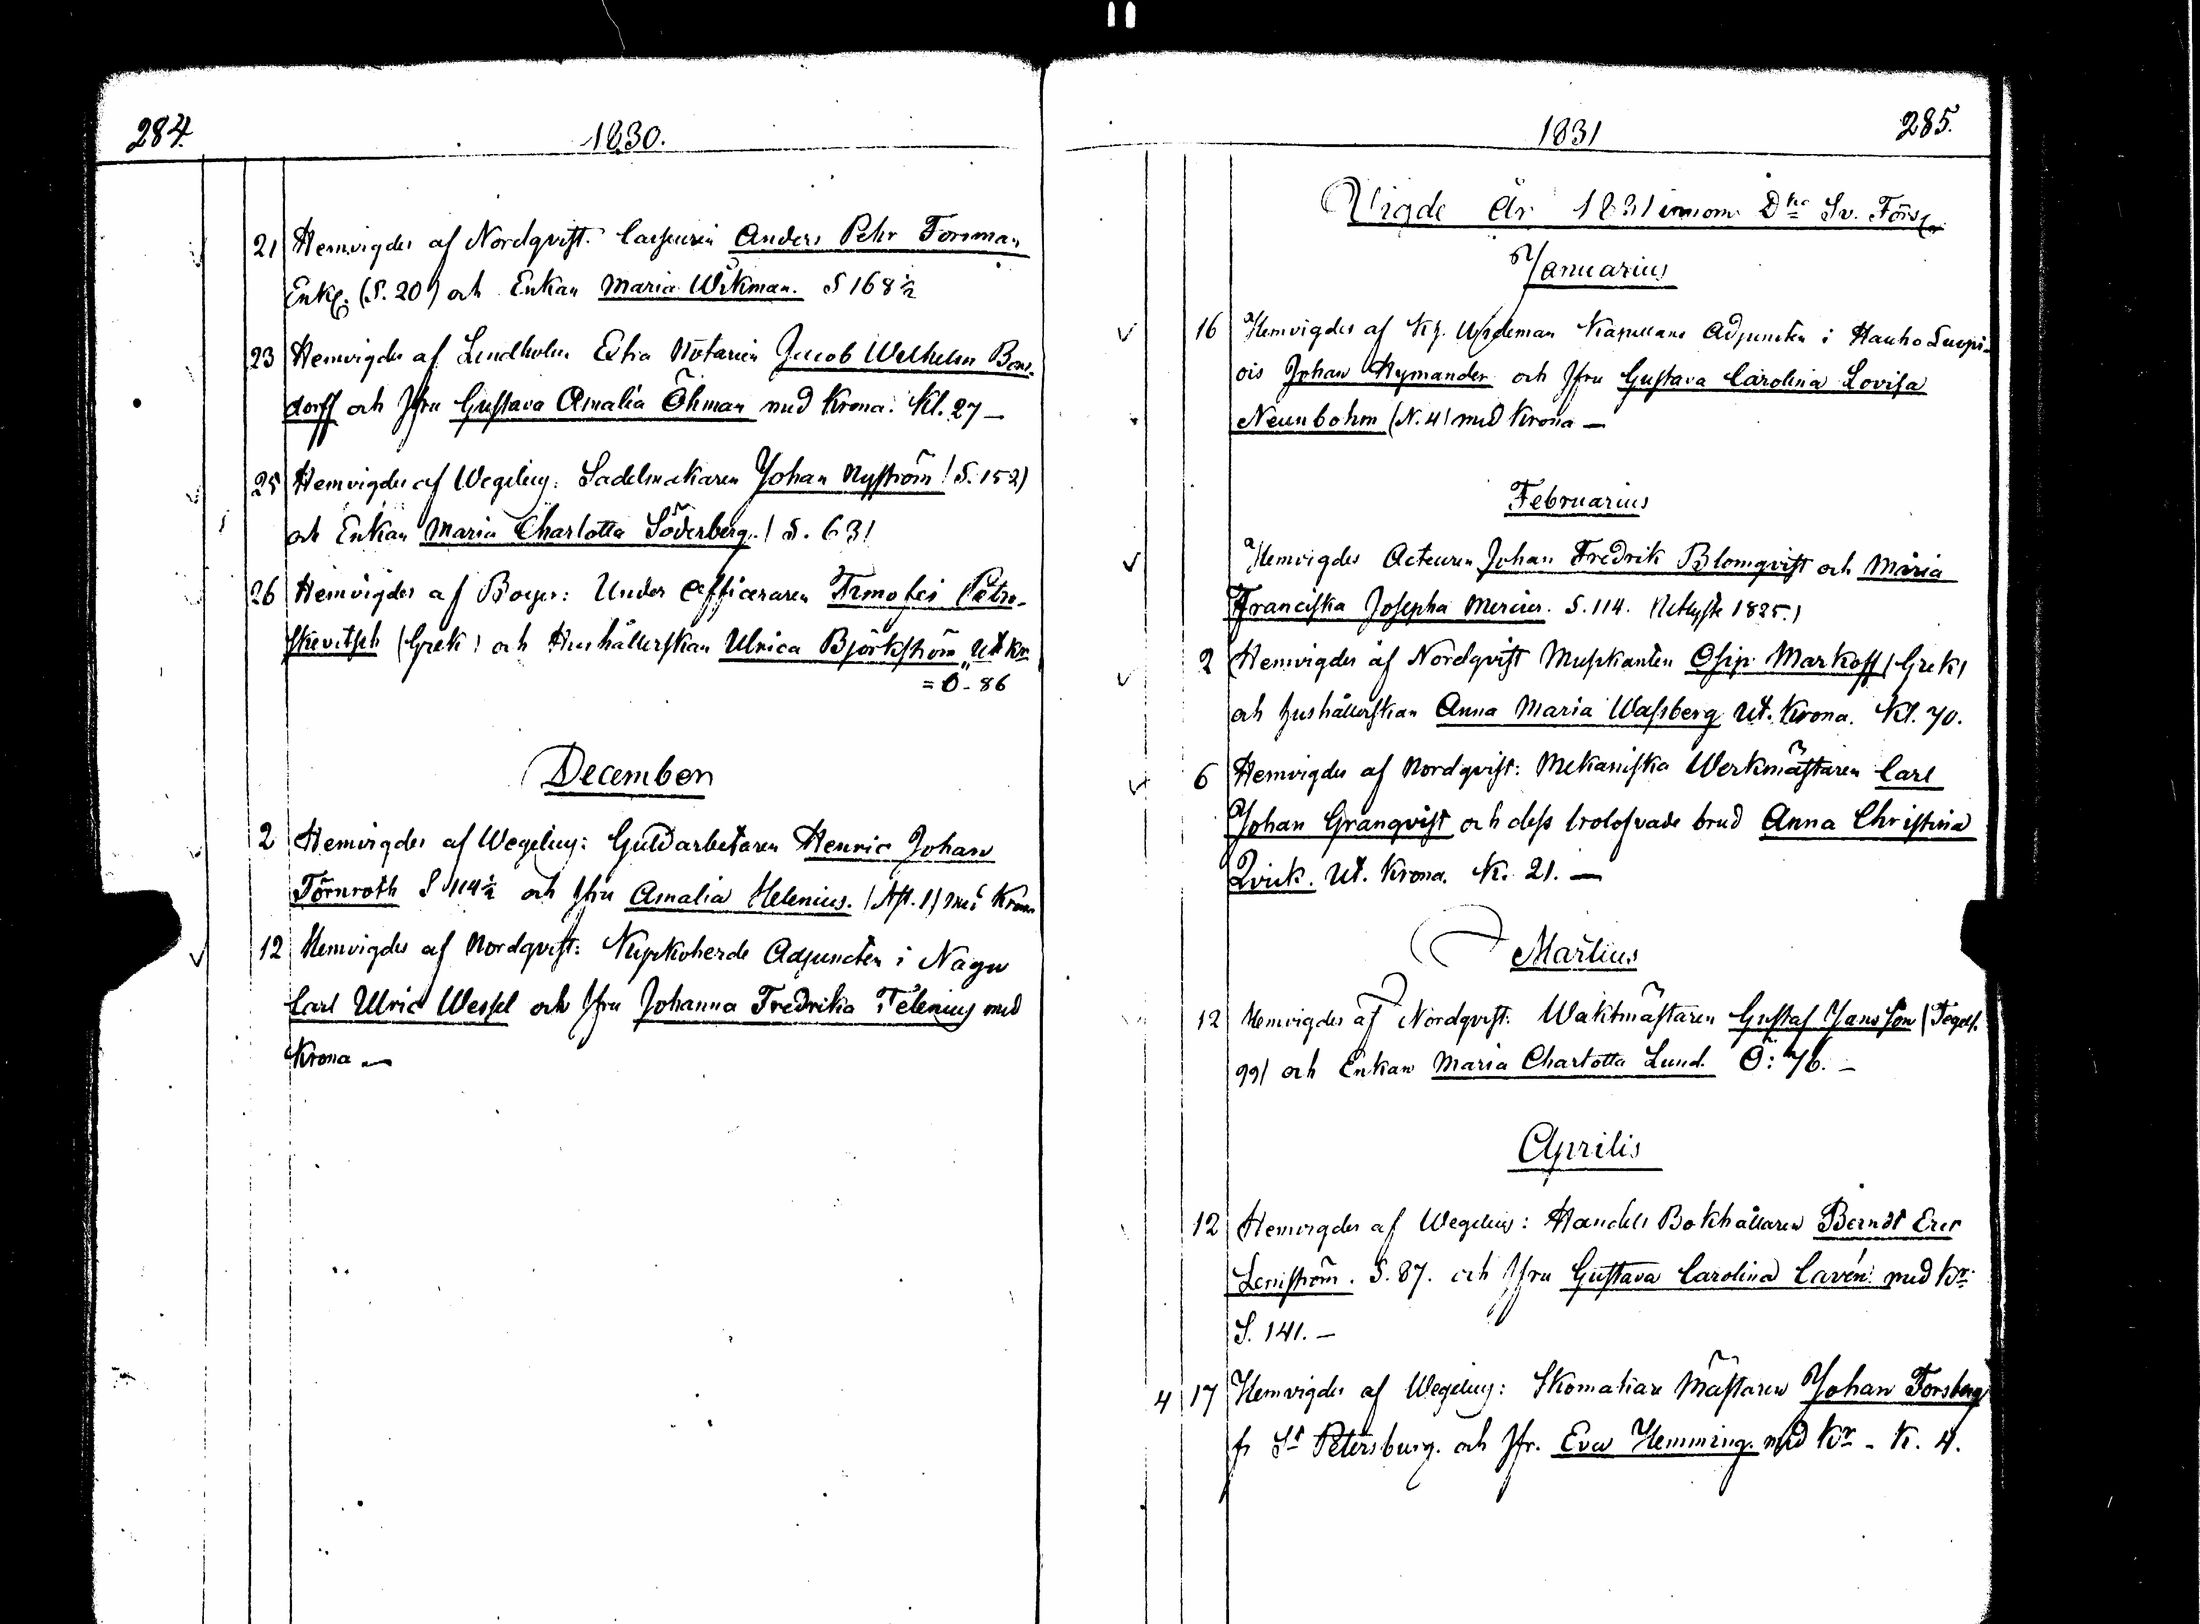 284.
1830.
21 Hemvigdes af Nordqvist: Anders Pehr Forsman
Enkl. (S. 20) och Enkan Maria Wikman. S 168 ½
23 Hemvigdes af Lindholm Extra Notarien Jacob Wilhelm Bons-
dorff och Jfru Gustava Amalia Öhman med Krona. Kl. 27 –
25 Hemvigdes af Wegelius: Sadelmakaren Johan Nyström (S. 152)
och Enkan Maria Charlotta Söderberg. (S. 63)
26 Hemvigdes af Under Officeraren Petro-
skevitsch (Grek) och Hushållerskan Ulrica Björkström ut Kr
= O - 86
December
2 Hemvigdes af Wegelius: Guldarbetaren Henric Johan
Törnroth S 114 ½ och Jfru Amalia Helenius. med Krona
12 Hemvigdes af Nordqvist: Kyrkoherde Adjuncten i Nagu
Carl Ulric Wessel och Jfru Johanna Fredrika Telenius med
Krona –
1831
285.
Vigde År 1831 innom Sv. Förs.
Januarius
16 Hemvigdes af Kapellans Adjuncten i Hauho Luopi-
ois Johan Nymander och Jfru Gustava Carolina Lovisa
Neunbohm (N. 4) med Krona –
Februarius
Hemvigdes Acteuren Johan Fredrik Blomqvist och Maria
Franciska Josepha Mercier. S. 114. 1825.)
2 Hemvigdes af Nordqvist Musikanten Osip Markoff (Grek)
och hushållerskan Anna Maria Wassberg ut. Krona. Kl. 70.
6 Hemvigdes af Nordqvist: Mekaniska Werkmästaren Carl
Johan Granqvist och dess trolofvade brud Anna Christina
Qvick. ut. Krona. K. 21. –
Martius
12 Hemvigdes af Nordqvist: Waktmästaren Gustaf Jansson
99) och Enkan Maria Charlotta Lund. O: 76. –
Aprilis
12 Hemvigdes af Wegelius: Handels Bokhållaren Berndt Eric
Lenström. S. 87. och Jfru Gustava Carolina Lavén med Kr.
S. 141. –
4 17 Hemvigdes af Wegelius: Skomakare Mästaren Johan Forsberg
fr St Petersburg. och Jfr. Eva Hemming. med Kr – K. 4.